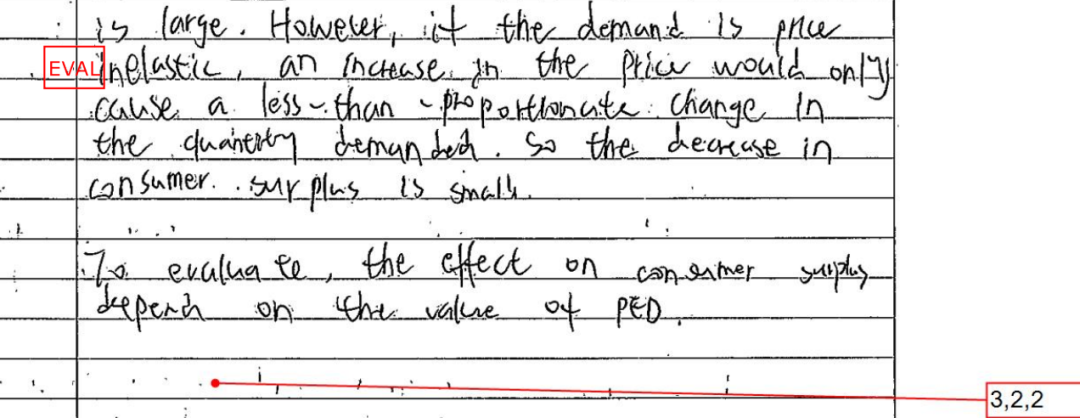 is large. However, if the demand is price
EVAL inelastic, an increase in the price would only
cause a less-than-proportionate change in
the quantity demanded. So the decrease in
consumer surplus is small.
To evaluate, the effect on consumer surplus
depend on the value of PED.
3,2,2